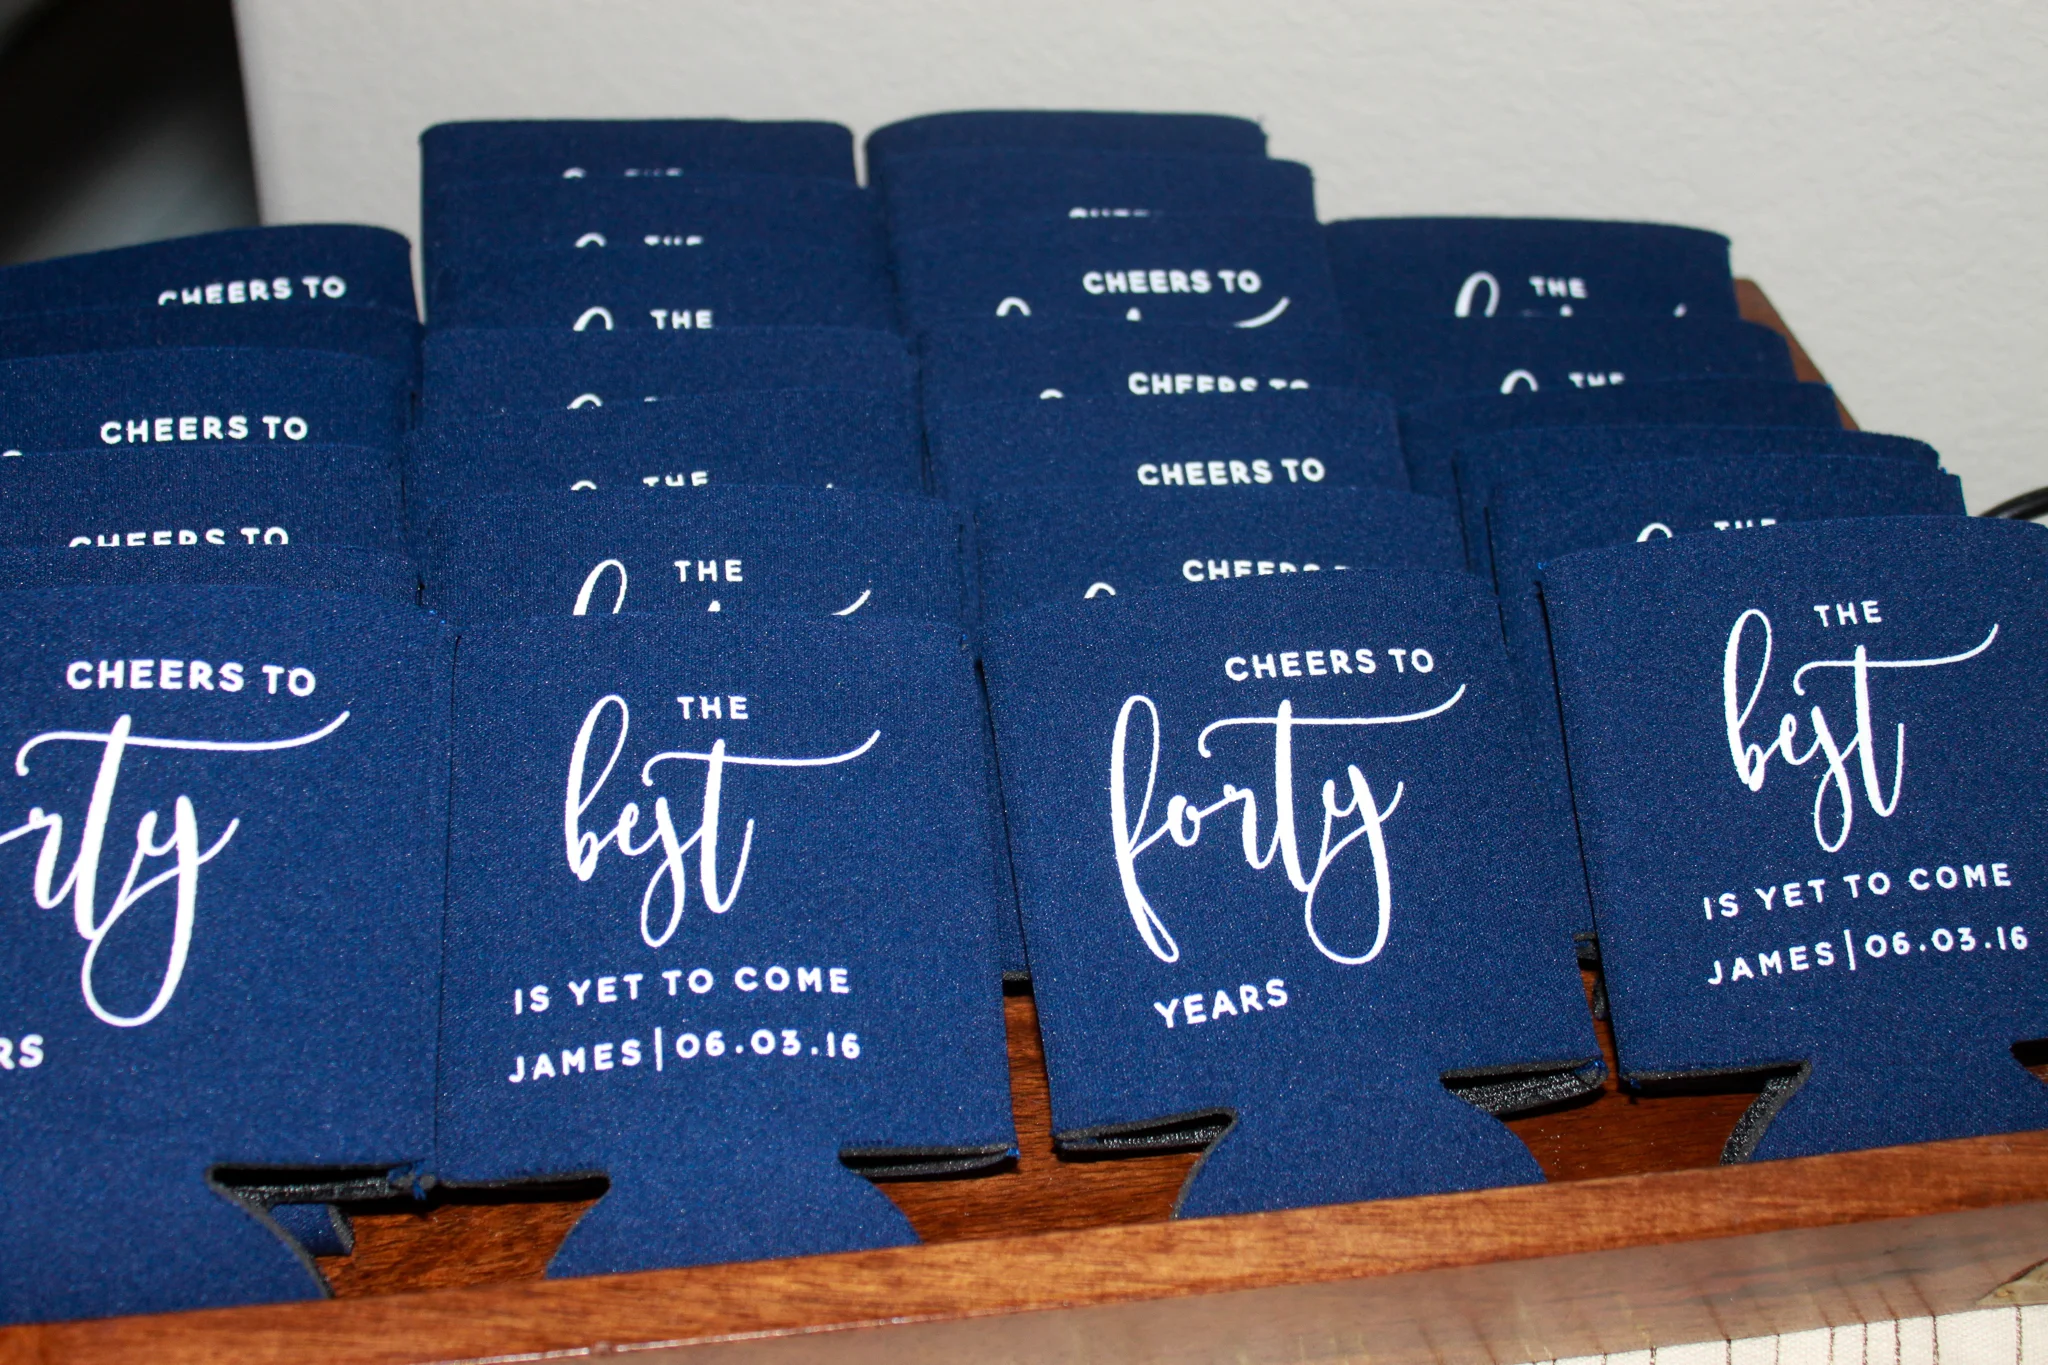 CHEERS TO
THE
THE
CHEERS TO
THE
CHEERS TO
CHEERS TO
THE
CHEERS TO
THE
CHEERS TO
THE
CHEERS TO
THE
CHEERS TO
THE
best
IS YET TO COME
JAMES|06.03.16
CHEERS TO
forty
YEARS
THE
best
IS YET TO COME
JAMES|06.03.16